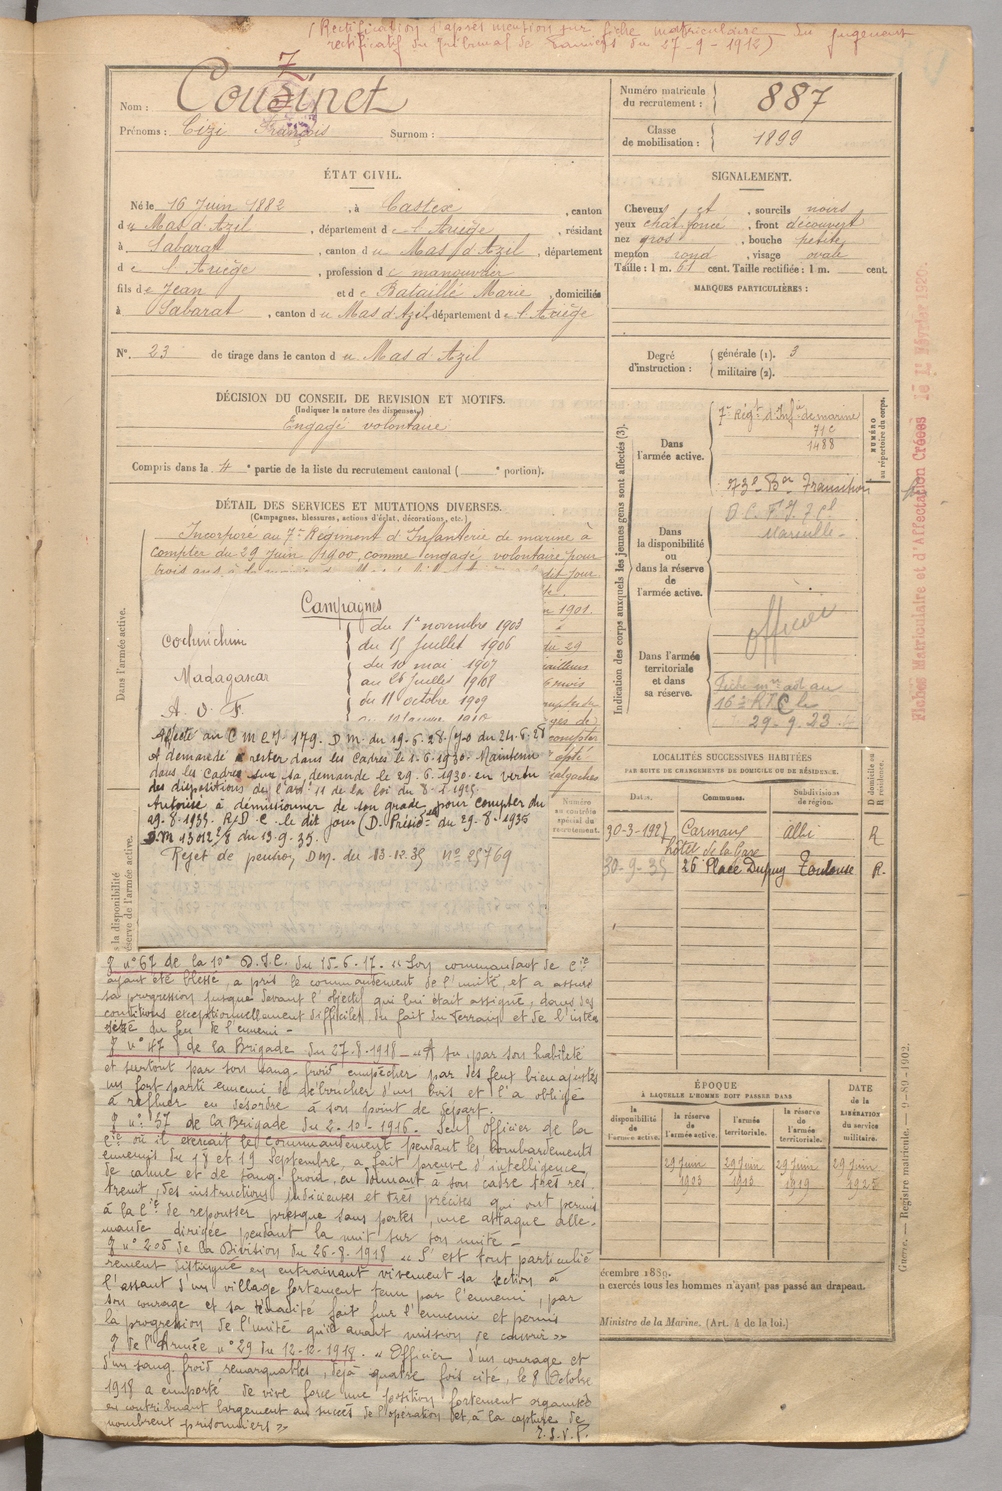 (Rectification d'après mention sur fiche matriculaire du jugement
rectificatif du Tribunal de Pamiers du 27-9-1912)
Nom : Couzinet
Prénoms : Cizi François Surnom :
Numéro matricule du recrutement : 887
Classe de mobilisation : 1899
ÉTAT CIVIL.
Né le 16 Juin 1882, à Castex, canton
du Mas d'Azil, département de l'Ariège, résidant
à Sabarat, canton du Mas d'Azil, département
de l'Ariège, profession de manouvrier
fils de Jean et de Bataillé Marie, domiciliés
à Sabarat, canton du Mas d'Azil, département de l'Ariège
N° 23 de tirage dans le canton du Mas d'Azil
SIGNALEMENT.
Cheveux et, sourcils noirs
yeux chât. foncé, front découvert
nez gros, bouche petite
menton rond, visage ovale
Taille : 1 m. 61 cent. Taille rectifiée : 1 m. cent.
MARQUES PARTICULIÈRES :
Degré d'instruction : générale (1). 3
militaire (2).
DÉCISION DU CONSEIL DE REVISION ET MOTIFS.
(Indiquer la nature des dispenses)
Engagé volontaire
Compris dans la 4e partie de la liste du recrutement cantonal ( e portion).
DÉTAIL DES SERVICES ET MUTATIONS DIVERSES.
(Campagnes, blessures, actions d'éclat, décorations, etc.)
Incorporé au 7e Régiment d'Infanterie de marine à
compter du 29 Juin 1900, comme engagé volontaire pour
Dans l'armée active.
Campagnes
Cochinchine du 1er novembre 1903
du 15 Juillet 1906
Madagascar du 10 mai 1907
au 26 Juillet 1908
A. O. F. du 11 octobre 1909
Affecté au C M C I 179. D.M. du 19.6.28
A demandé à rester dans les cadres le 1.6.1930. Maintenu
dans les cadres sur sa demande le 29.6.1930 en vertu
des dispositions de l'art. 11 de la loi du 8-1-1925.
Autorisé à démissionner de son grade pour compter du
29-8-1935. RdC le dit jour (D. Présid. du 29-8-1935
du 13.9.35.
Rejet de pension, DM. du 13-12-35 n° 25769
Indication des corps auxquels les jeunes gens sont affectés (3).
NUMÉRO au répertoire du corps.
Dans l'armée active.
7e Régt d'Infie de marine
1488
73e Bon Transition
Dans la disponibilité ou dans la réserve de l'armée active.
Marseille
Dans l'armée territoriale et dans sa réserve.
officier
29-9-23
Fiches Matriculaire et d'Affectation Créées le 1er Février 1920.
Numéro au contrôle spécial du recrutement.
LOCALITÉS SUCCESSIVES HABITÉES
PAR SUITE DE CHANGEMENTS DE DOMICILE OU DE RÉSIDENCE.
Dates. Communes. Subdivisions de région. D domicile ou R résidence.
30-3-1927 Carmaux Albi R
Hôtel de la Gare
30-9-35 26 Place Dupuy Toulouse R.
O n° 67 de la 10e D.I.C. du 15-6-17. « Son commandant de Cie
ayant été blessé, a pris le commandement de l'unité, et a assuré
sa progression jusque devant l'objectif qui lui était assigné, dans des
conditions exceptionnellement difficiles, du fait du terrain et de l'inten
sité du feu de l'ennemi -
O n° 47 de la Brigade du 27-8-1918 - « A su par son habileté
et surtout par son sang froid empêcher par des feux bien ajustés
un fort parti ennemi de déboucher d'un bois et l'a obligé
à refluer en désordre à son point de départ.
O n° 57 de la Brigade du 2-10-1916. Seul officier de la
Cie où il exerçait le commandement pendant les bombardements
ennemis du 18 et 19 Septembre, a fait preuve d'intelligence,
de calme et de sang-froid, en donnant à son cadre très res
treint, des instructions judicieuses et très précises qui ont permis
à la Cie de repousser presque sans pertes, une attaque alle-
mande dirigée pendant la nuit sur son unité -
O n° 205 de la Division du 26-8-1918 « S'est tout particuliè
rement distingué en entrainant vivement sa section à
l'assaut d'un village fortement tenu par l'ennemi, par
son courage et sa ténacité fait fuir l'ennemi et permis
la progression de l'unité qu'il avait mission de couvrir »
O de l'Armée n° 29 du 12-12-1918. « Officier d'un courage et
d'un sang froid remarquables, déjà quatre fois cité, le 8 Octobre
1918 a emporté de vive force une position fortement organisée
en contribuant largement au succès de l'opération et à la capture de
nombreux prisonniers »
T.S.V.P.
ÉPOQUE
À LAQUELLE L'HOMME DOIT PASSER DANS
la disponibilité de l'armée active. la réserve de l'armée active. l'armée territoriale. la réserve de l'armée territoriale. DATE de la LIBÉRATION du service militaire.
29 Juin 1903 29 Juin 1913 29 Juin 1919 29 Juin 1925
écembre 1889.
n exercés tous les hommes n'ayant pas passé au drapeau.
Ministre de la Marine. (Art. 4 de la loi.)
Guerre. — Registre matricule. — 9-89-1902.